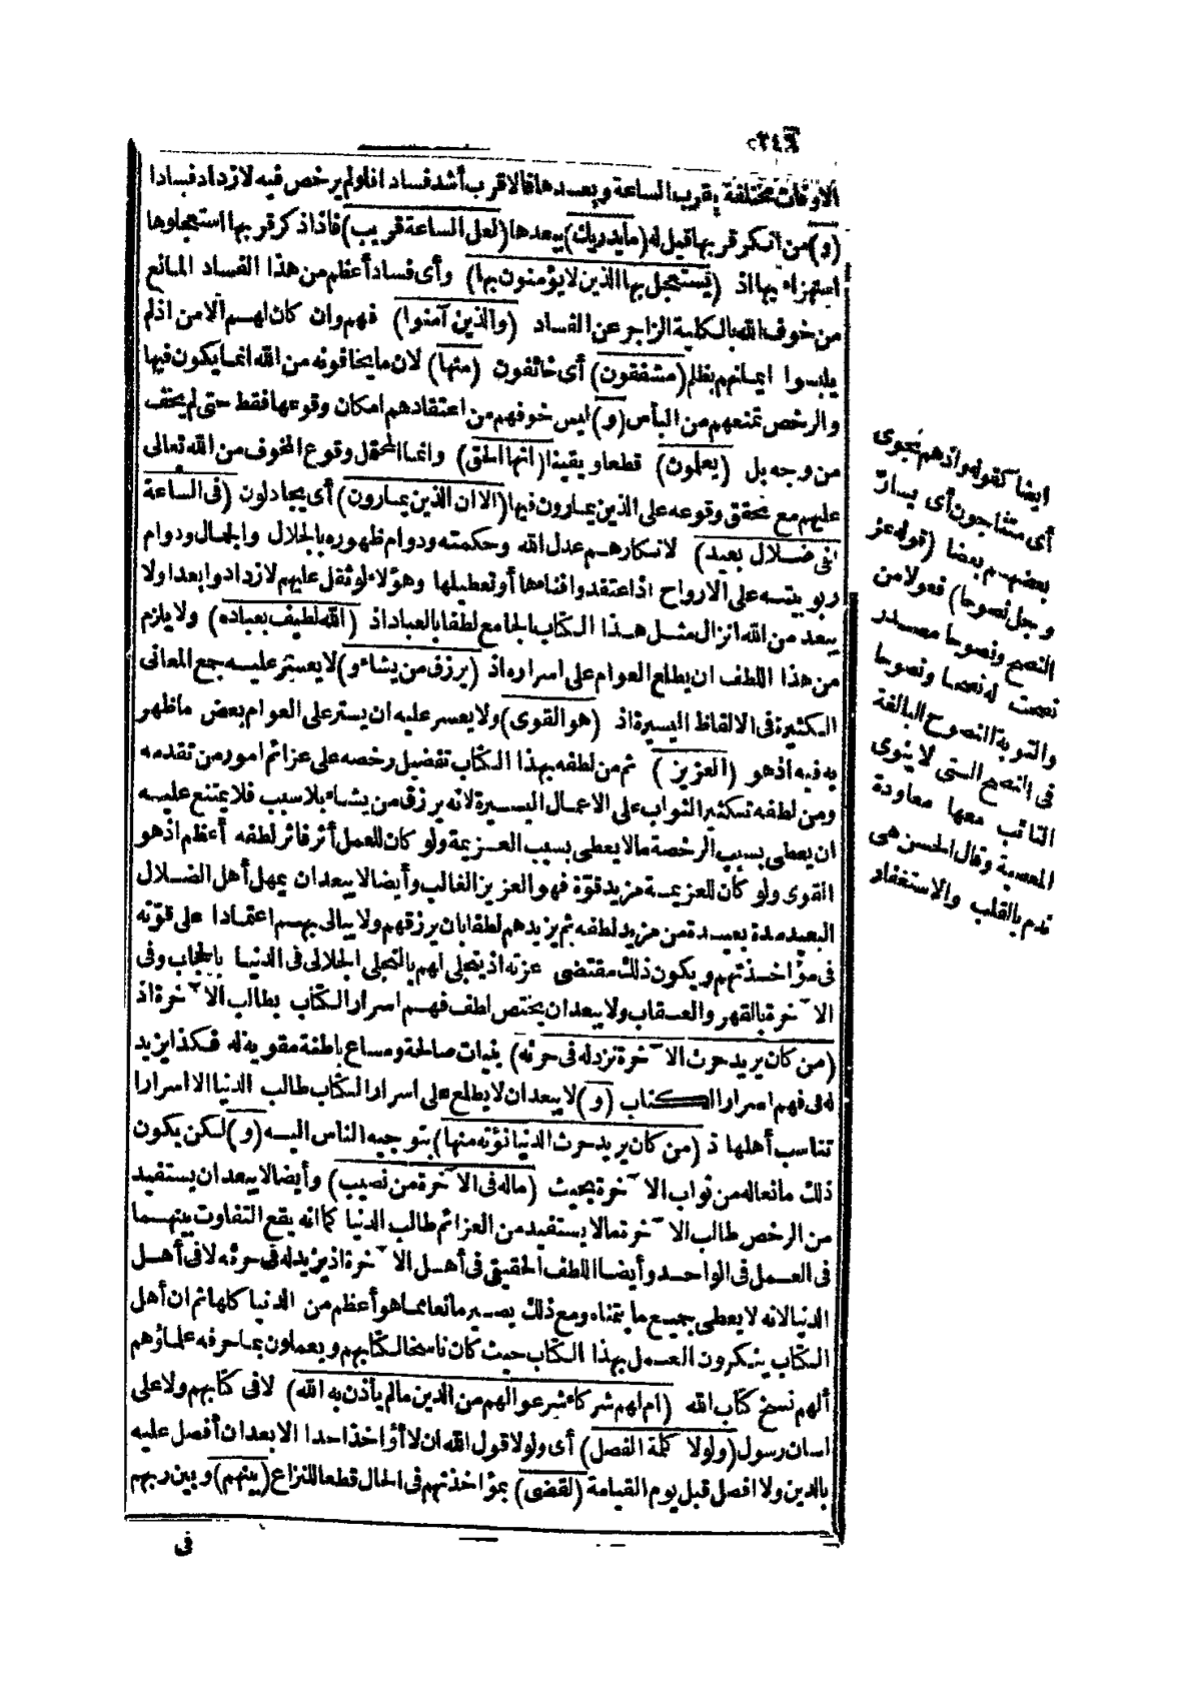 ٢٤٦
الاوقات مختلفة بقرب الساعة وبعدها فالاقرب أشد فسادا فلو لم يرخص فيه لازداد فسادا
(و) من أنكر قربها قيل له (ما يدريك) ببعدها (لعل الساعة قريب) فاذا ذكر قربها استعجلوها
استهزاء بها اذ (يستعجل بها الذين لا يؤمنون بها) وأى فساد أعظم من هذا الفساد المانع
من خوف الله بالكلية الزاجر عن الفساد (والذين آمنوا) فهم وان كان لهم الامن اذ لم
يلبسوا ايمانهم بظلم (مشفقون) أى خائفون (منها) لان ما يخافونه من الله انما يكون فيها
والرخص تمنعهم من اليأس (و) ليس خوفهم من اعتقادهم امكان وقوعها فقط حتى لم يخف
من وجه بل (يعلمون) قطعا ويقينا (انها الحق) وانما المحتمل وقوع المخوف من الله تعالى
عليهم مع تحقق وقوعه على الذين يمارون فيها (الا ان الذين يمارون) أى يجادلون (فى الساعة
لفى ضلال بعيد) لانكارهم عدل الله وحكمته ودوام ظهوره بالجلال والجمال ودوام
ربوبيته على الارواح اذ اعتقدوا فناءها أو تعطيلها وهؤلاء لو ثقل عليهم لازدادوا بعدا ولا
يبعد من الله انزال مثل هذا الكتاب الجامع لطفا بالعباد اذ (الله لطيف بعباده) ولا يلزم
من هذا اللطف ان يطلع العوام على اسراره اذ (يرزق من يشاء و) لا يعسر عليه جمع المعانى
الكثيرة فى الالفاظ اليسيرة اذ (هو القوى) ولا يعسر عليه ان يستر على العوام بعض ما ظهر
به فيه اذ هو (العزيز) ثم من لطفه بهذا الكتاب تفضيل رخصه على عزائم امور من تقدمه
ومن لطفه تكثير الثواب على الاعمال اليسيرة لانه يرزق من يشاء بلا سبب فلا يمتنع عليه
ان يعطى بسبب الرخصة ما لا يعطى بسبب العزيمة ولو كان للعمل أثر فاثر لطفه أعظم اذ هو
القوى ولو كان للعزيمة مزيد قوّة فهو العزيز الغالب وأيضا لا يبعد ان يمهل أهل الضلال
البعيد مدة بعيدة من مزيد لطفه ثم يزيدهم لطفا بان يرزقهم ولا يبالى بهم اعتمادا على قوّته
فى مؤاخذتهم ويكون ذلك مقتضى عزته اذ يتجلى لهم بالتجلى الجلالى فى الدنيا بالحجاب وفى
الآخرة بالقهر والعقاب ولا يبعد ان يختص لطف فهم اسرار الكتاب بطالب الآخرة اذ
(من كان يريد حرث الآخرة نزد له فى حرثه) بنيات صالحة ومساع باطنة مقوية له فكذا يزيد
له فى فهم اسرار الكتاب (و) لا يبعد ان لا يطلع على اسرار الكتاب طالب الدنيا الا اسرارا
تناسب أهلها ذ (من كان يريد حرث الدنيا نؤته منها) بتوجيه الناس اليه (و) لكن يكون
ذلك مانعا له من ثواب الآخرة بحيث (ماله فى الآخرة من نصيب) وأيضا لا يبعد ان يستفيد
من الرخص طالب الآخرة ما لا يستفيد من العزائم طالب الدنيا كما انه يقع التفاوت بينهما
فى العمل فى الواحد وأيضا اللطف الحقيقى فى أهل الآخرة اذ يزيد له فى حرثه لا فى أهل
الدنيا لانه لا يعطى جميع ما يتمناه ومع ذلك يصير مانعا مما هو أعظم من الدنيا كلها ثم ان أهل
الكتاب ينكرون العمل بهذا الكتاب حيث كان ناسخا لكتابهم ويعملون بما حرفه علماؤهم
ألهم نسخ كتاب الله (ام لهم شركاء شرعوا لهم من الدين ما لم يأذن به الله) لا فى كتابهم ولا على
لسان رسول (ولولا كلمة الفصل) أى ولولا قول الله ان لا أؤاخذ احدا الا بعد ان أفصل عليه
بالدين ولا افصل قبل يوم القيامة (لقضى) بمؤاخذتهم فى الحال قطعا للنزاع (بينهم) وبين ربهم
فى
ايضا كقوله واذ هم نجوى
أى متناجون أى يسارّ
بعضهم بعضا (قوله عز
وجل نصوحا) فعولا من
النصح ونصوحا مصدر
نصحت له نصحا ونصوحا
والتوبة النصوح البالغة
فى النصح التى لا ينوى
التائب معها معاودة
المعصية وقال الحسن هى
ندم بالقلب والاستغفار